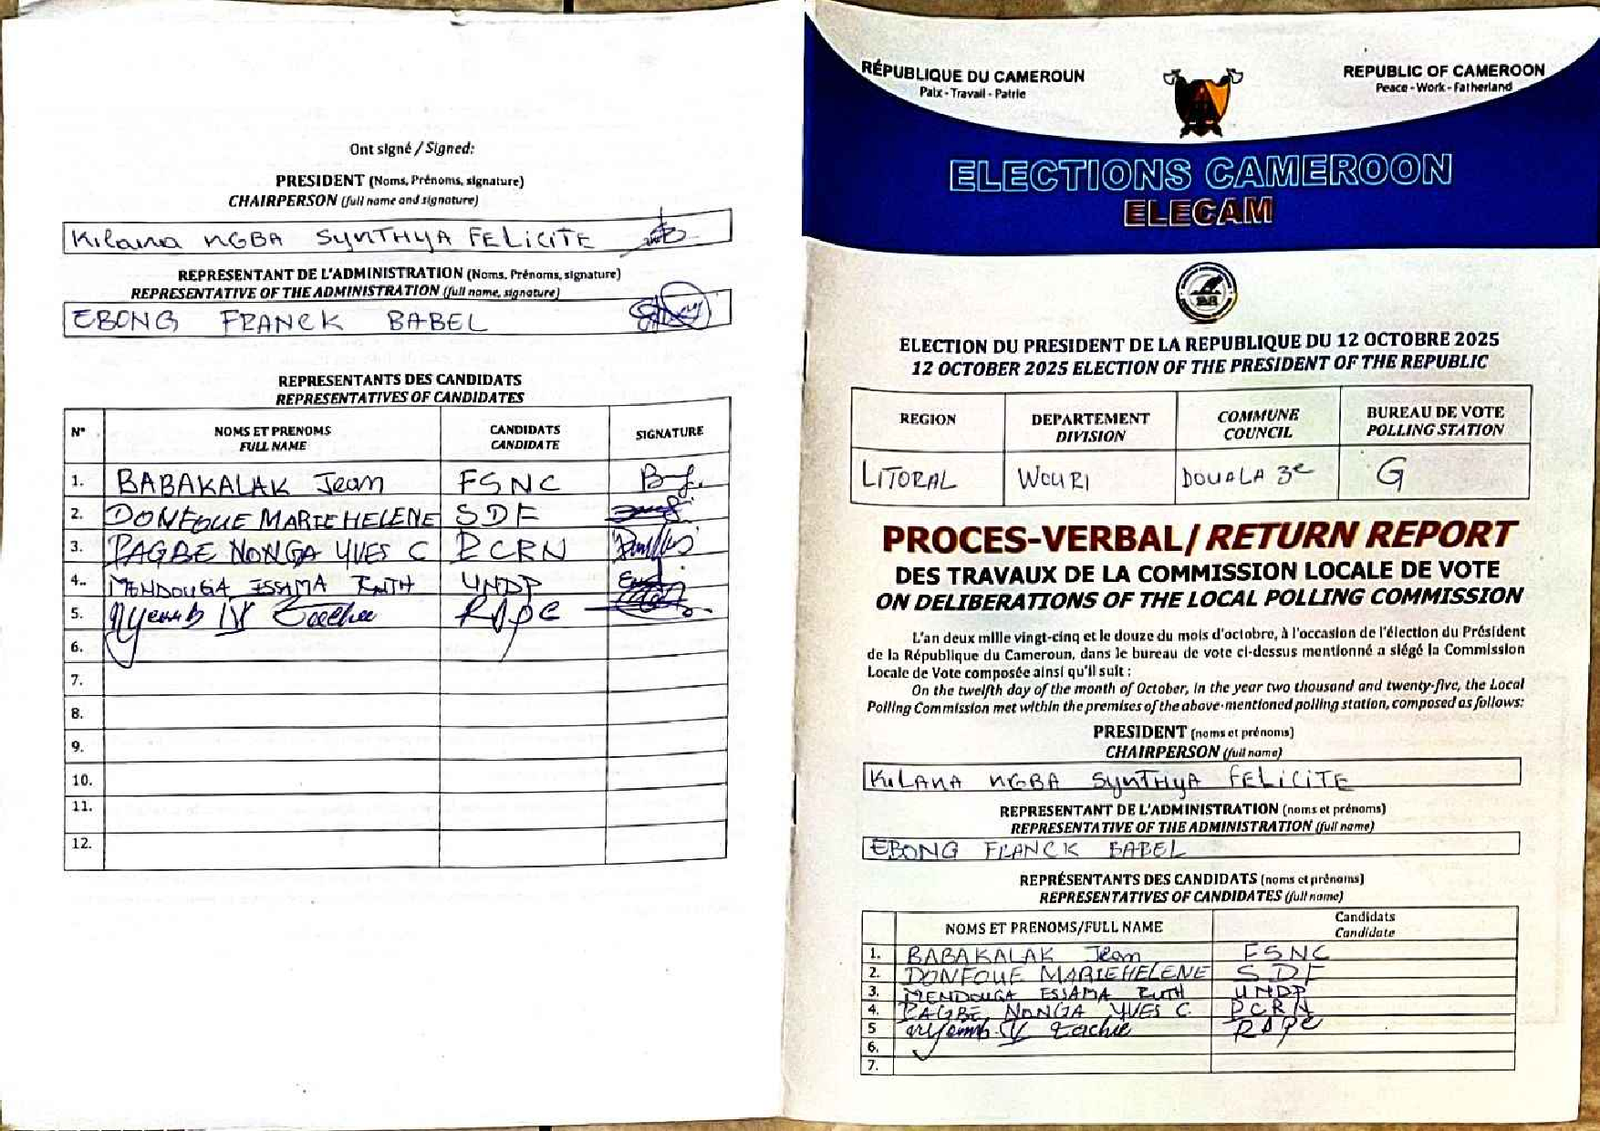 Ont signé / Signed:
PRESIDENT (Noms, Prénoms, signature)
CHAIRPERSON (full name and signature)
Kilana NGBA SYNTHYA FELICITE
REPRESENTANT DE L'ADMINISTRATION (Noms, Prénoms, signature)
REPRESENTATIVE OF THE ADMINISTRATION (full name, signature)
EBONG FRANCK BABEL
REPRESENTANTS DES CANDIDATS
REPRESENTATIVES OF CANDIDATES
N° NOMS ET PRENOMS FULL NAME CANDIDATS CANDIDATE SIGNATURE
1. BABAKALAK Jean FSNC
2. DONFOUE MARIE HELENE SDF
3. PAGBE NONGA YVES C PCRN
4.. MENDOUGA ESSAMA RUTH UNDP
5. IV
6.
7.
8.
9.
10.
11.
12.
RÉPUBLIQUE DU CAMEROUN
Paix - Travail - Patrie
REPUBLIC OF CAMEROON
Peace - Work - Fatherland
ELECTIONS CAMEROON
ELECAM
ELECTION DU PRESIDENT DE LA REPUBLIQUE DU 12 OCTOBRE 2025
12 OCTOBER 2025 ELECTION OF THE PRESIDENT OF THE REPUBLIC
REGION DEPARTEMENT DIVISION COMMUNE COUNCIL BUREAU DE VOTE POLLING STATION
LITORAL WOURI DOUALA 3e G
PROCES-VERBAL/ RETURN REPORT
DES TRAVAUX DE LA COMMISSION LOCALE DE VOTE
ON DELIBERATIONS OF THE LOCAL POLLING COMMISSION
L'an deux mille vingt-cinq et le douze du mois d'octobre, à l'occasion de l'élection du Président
de la République du Cameroun, dans le bureau de vote ci-dessus mentionné a siégé la Commission
Locale de Vote composée ainsi qu'il suit :
On the twelfth day of the month of October, in the year two thousand and twenty-five, the Local
Polling Commission met within the premises of the above-mentioned polling station, composed as follows:
PRESIDENT (noms et prénoms)
CHAIRPERSON (full name)
KILANA NGBA SYNTHYA FELICITE
REPRESENTANT DE L'ADMINISTRATION (noms et prénoms)
REPRESENTATIVE OF THE ADMINISTRATION (full name)
EBONG FRANCK BABEL
REPRÉSENTANTS DES CANDIDATS (noms et prénoms)
REPRESENTATIVES OF CANDIDATES (full name)
NOMS ET PRENOMS/FULL NAME Candidats Candidate
1. BABAKALAK Jean FSNC
2. DONFOUE MARIE HELENE SDF
3. MENDOUGA ESSAMA RUTH UNDP
4. PAGBE NONGA YVES C. PCRN
5 IV
6.
7.